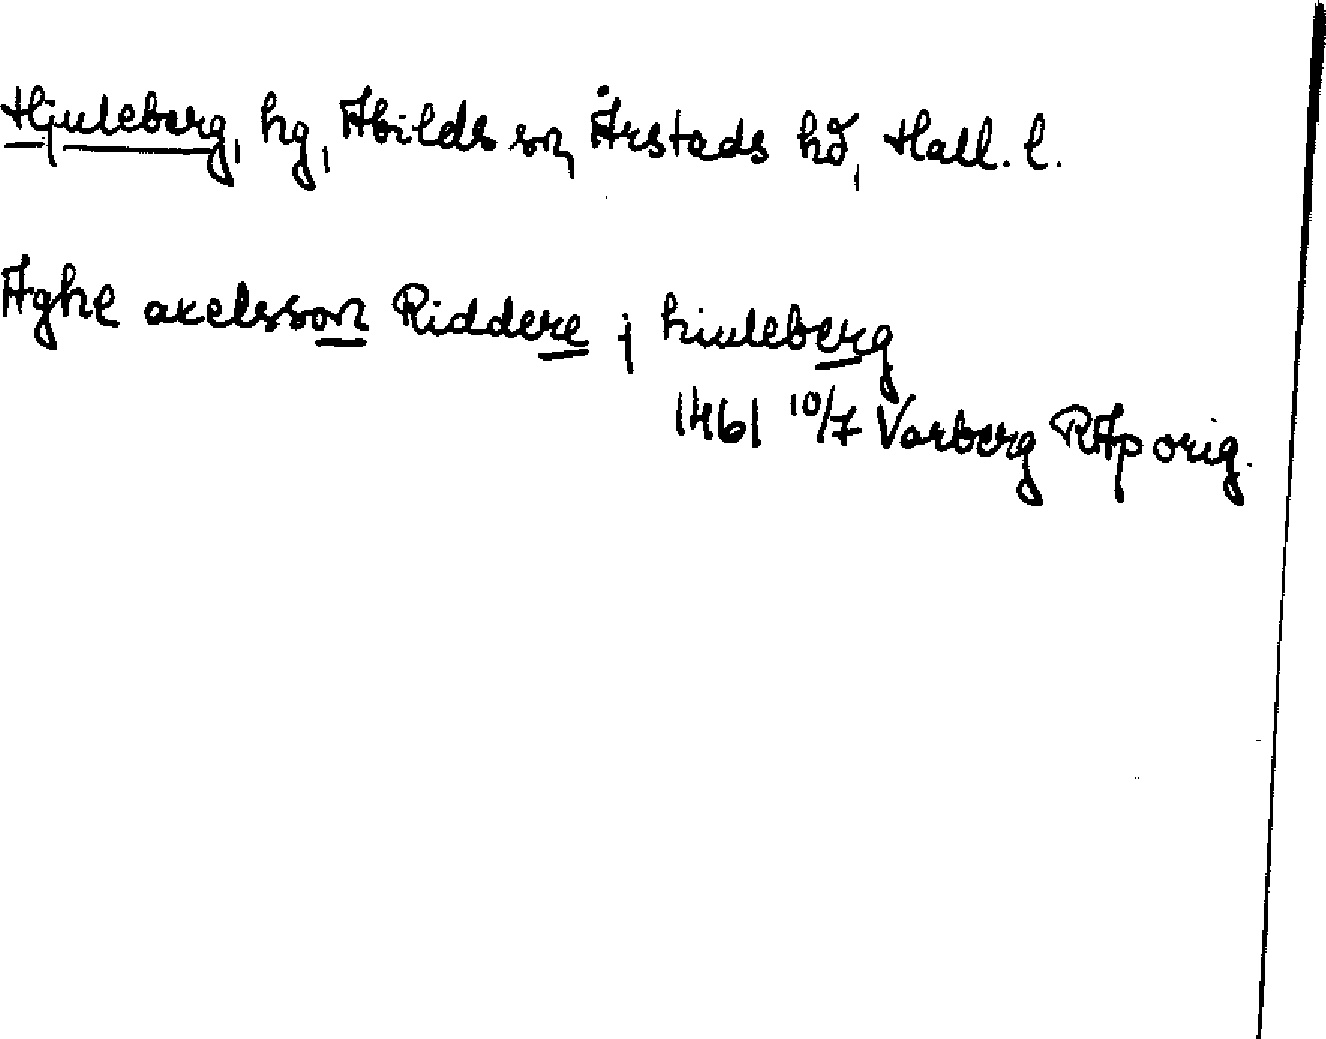 Hjuleberg, hg, Abilds sn, Årstads hd, Hall. l.
Aghe axelsson Riddere j hiuleberg
1461 10/7 Varberg RAp orig.